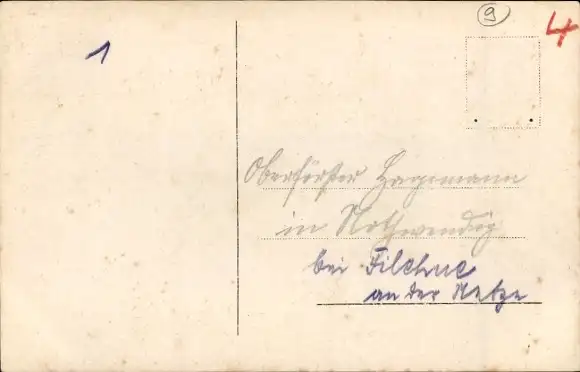 1
9
4
Oberförster Hagemann
in Nothwendig
bei Filehne
an der Netze